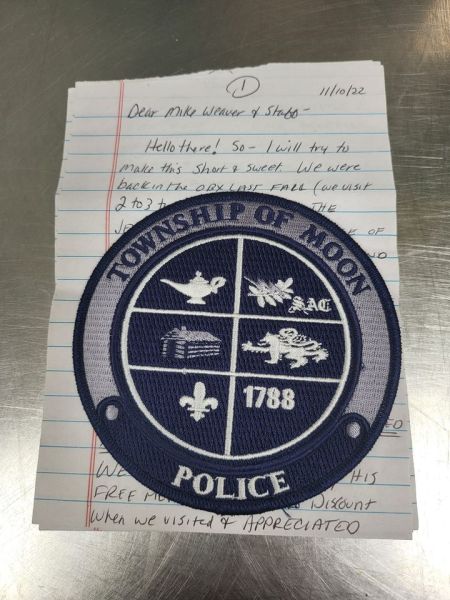 1
11/10/22
Dear Mike Weaver &
Hello there! So - I will try to
make this short & sweet. We were
back in the OBX LAST FALL (we visit
2 to 3 THE
TOWNSHIP OF MOON
SAC
1788
POLICE
WE HIS
FREE DISCOUNT
when we visited & APPRECIATED